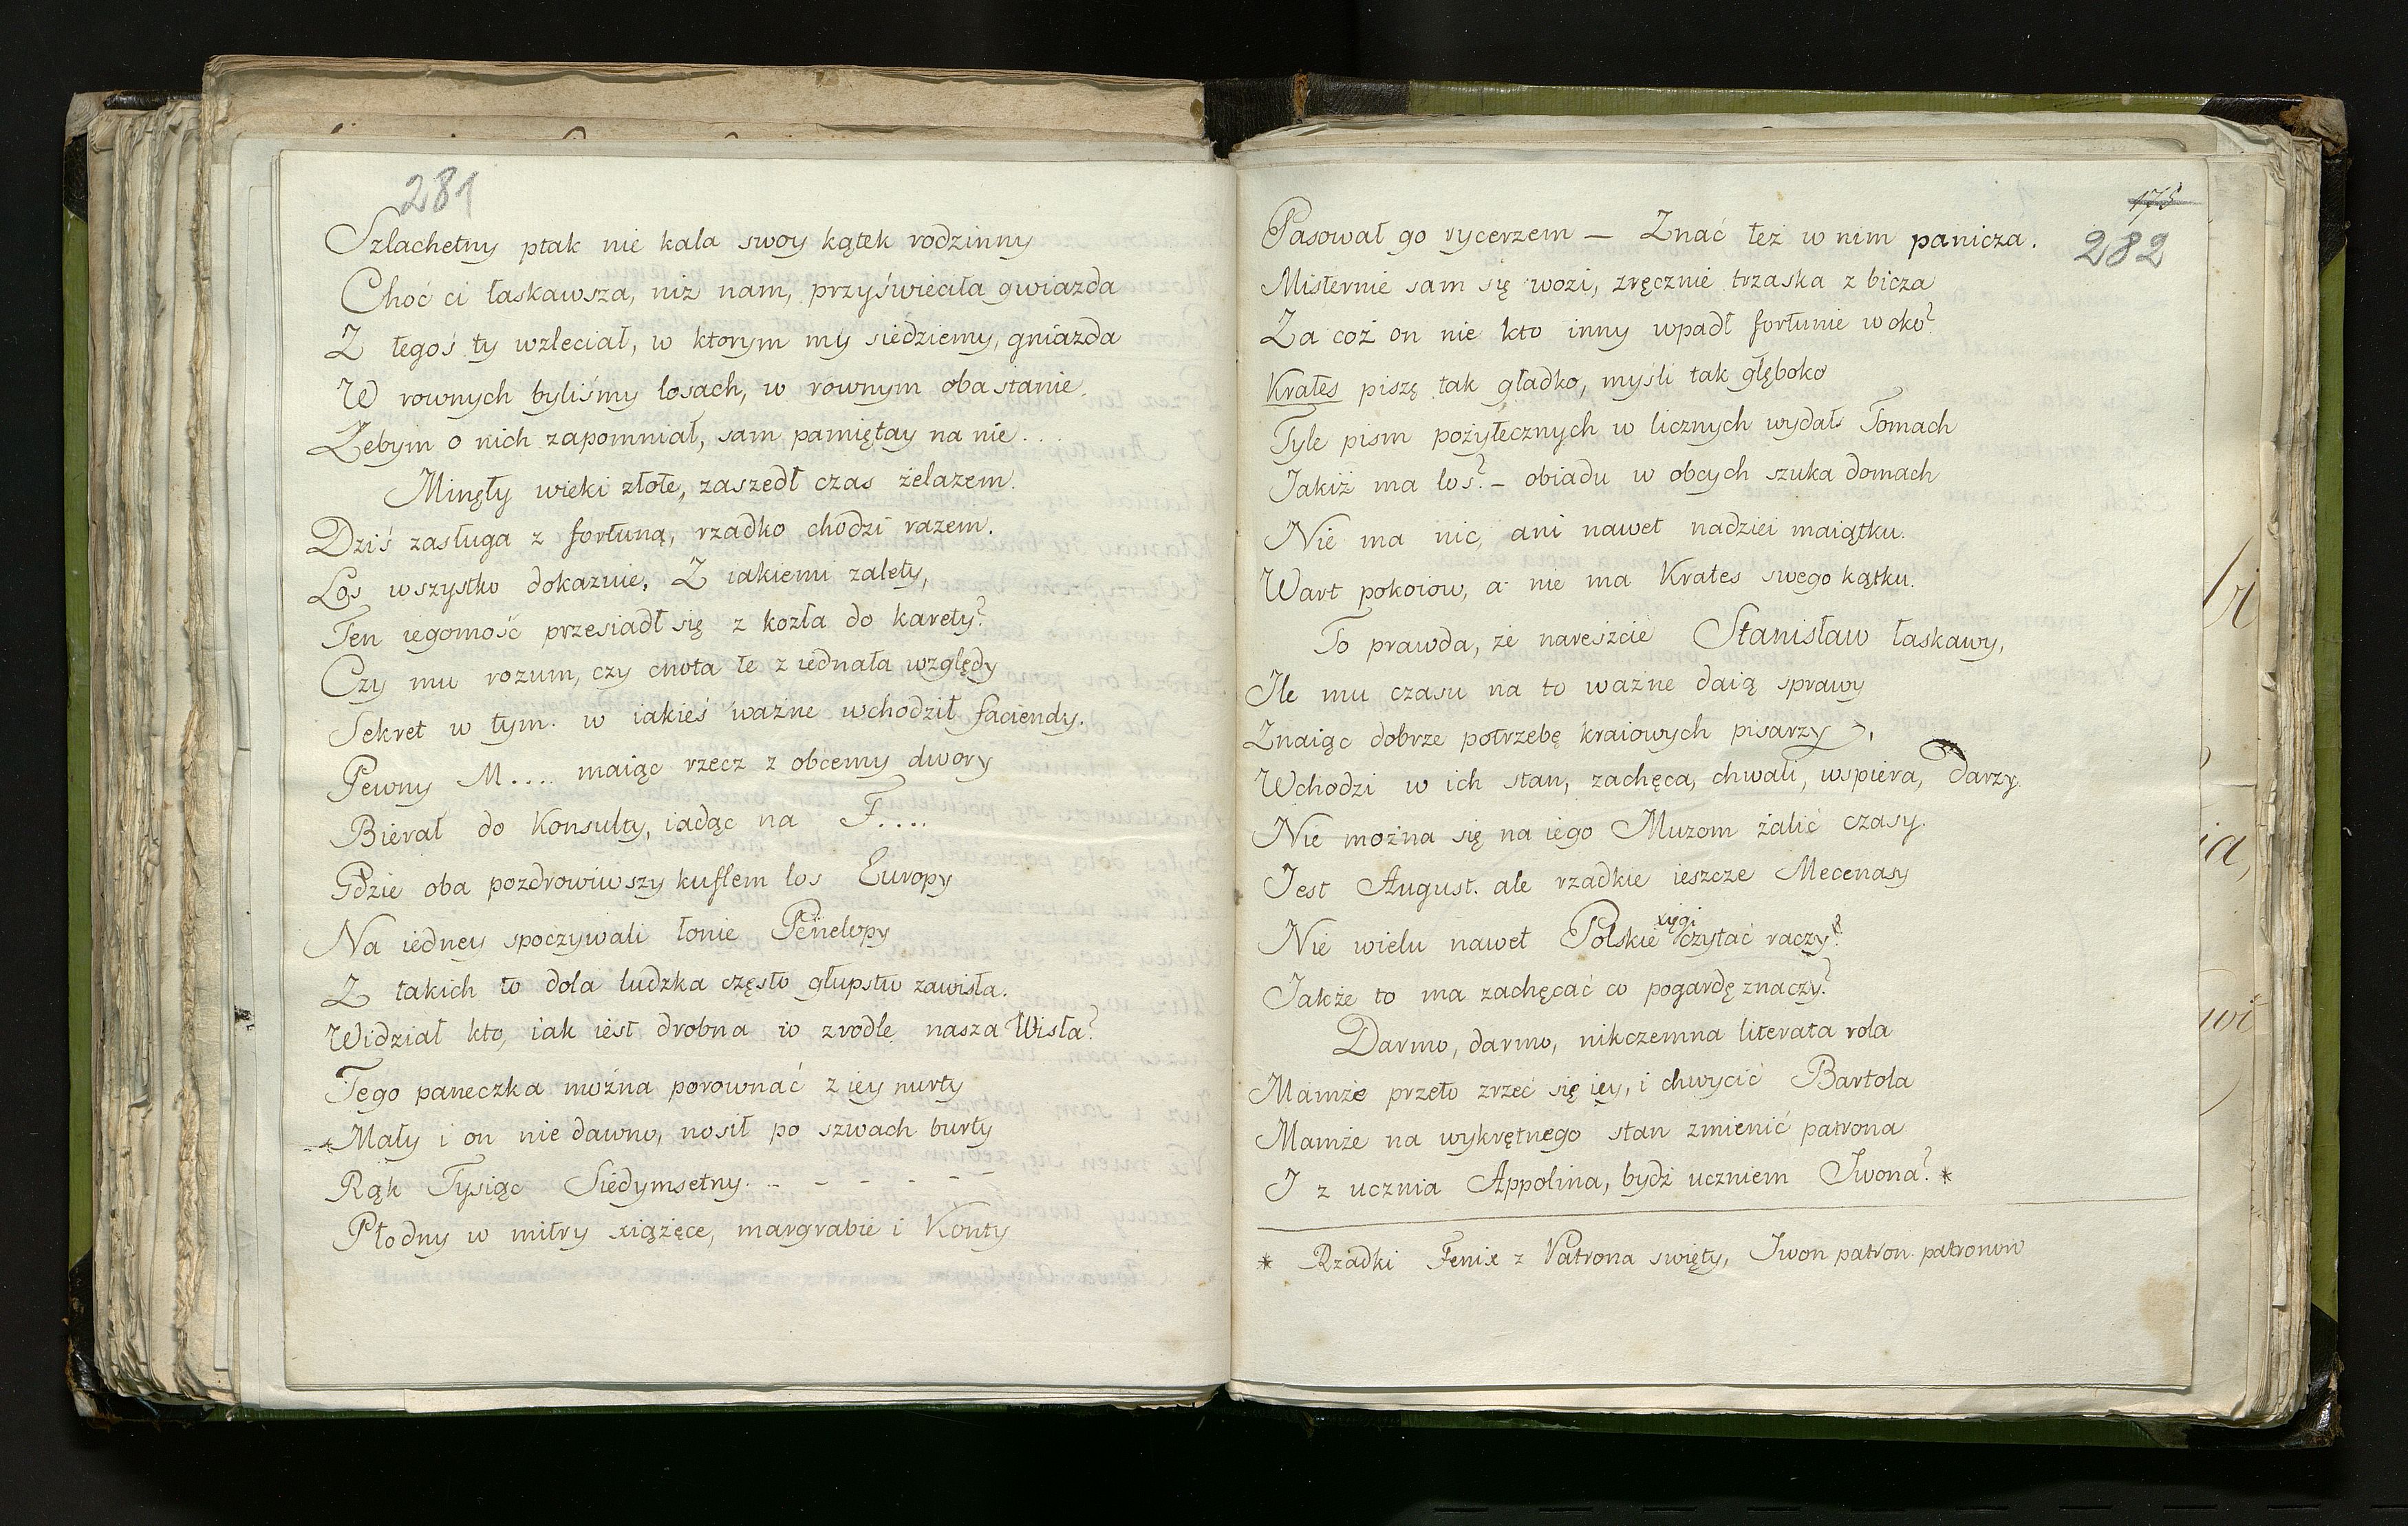 281
Szlachetny ptak nie kala swoy kątek rodzinny
Choć ci łaskawsza, niż nam, przyświeciła gwiazda
Z tegoś ty wzleciał, w ktorym my siedziemy, gniazda
W rownych byliśmy losach, w równym oba stanie.
Żebym o nich zapomniał, sam pamiętay na nie...
Minęły wieki złote, zaszedł czas żelazem.
Dziś zasługa z fortuną, rzadko chodzi razem.
Los wszystko dokazuie, Z iakiemi zalety,
Ten iegomość przesiadł się z kozła do karety?
Czy mu rozum, czy cnota te ziednała względy
Sekret w tym. w iakieś ważne wchodził faciendy.
Pewny M.... maiąc rzecz z obcemy dwory
Bierał do Konsulty, iadąc na F....
Gdzie oba pozdrowiwszy kuflem los Europy
Na iedney spoczywali łonie Penelopy
Z takich to dola ludzka często głupstw zawisła.
Widział kto, iak iest drobna w zrodle nasza Wisła?
Tego paneczka można porownać z iey nurty
Mały i on nie dawno, nosił po szwach burty
Rąk Tysiąc Siedymsetny. - - - - - -
Płodny w mitry xiążęce, margrabie i Konty
175
282
Pasował go rycerzem — Znać też w nim panicza.
Misternie sam się wozi, zręcznie trzaska z bicza
Za coż on nie kto inny wpadł fortunie w oko?
Krates piszę tak gładko, myśli tak głęboko
Tyle pism pożytecznych w licznych wydał Tomach
Jakiż ma los? – obiadu w obcych szuka domach
Nie ma nic, ani nawet nadziei maiątku.
Wart pokoiow, a nie ma Krates swego kątku.
To prawda, że nareszcie Stanisław łaskawy,
Ile mu czasu na to ważne daią sprawy
Znaiąc dobrze potrzebę kraiowych pisarzy,
Wchodzi w ich stan, zachęca, chwali, wspiera, darzy.
Nie można się na iego Muzom żalić czasy.
Jest August. ale rzadkie ieszcze Mecenasy
Nie wielu nawet Polskie xięgi czytać raczy?
Jakże to ma zachęcać co pogardę znaczy?
Darmo, darmo, nikczemna literata rola
Mamże przeto zrzec się iey, i chwycić Bartola
Mamże na wykrętnego stan zmienić patrona
I z ucznia Appolina, bydź uczniem Iwona? *
* Rzadki Fenix z Patrona święty, Iwon patron patronow